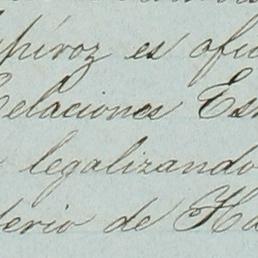 spíroz es ofi
Relaciones Es
legalizando
terio de Ha